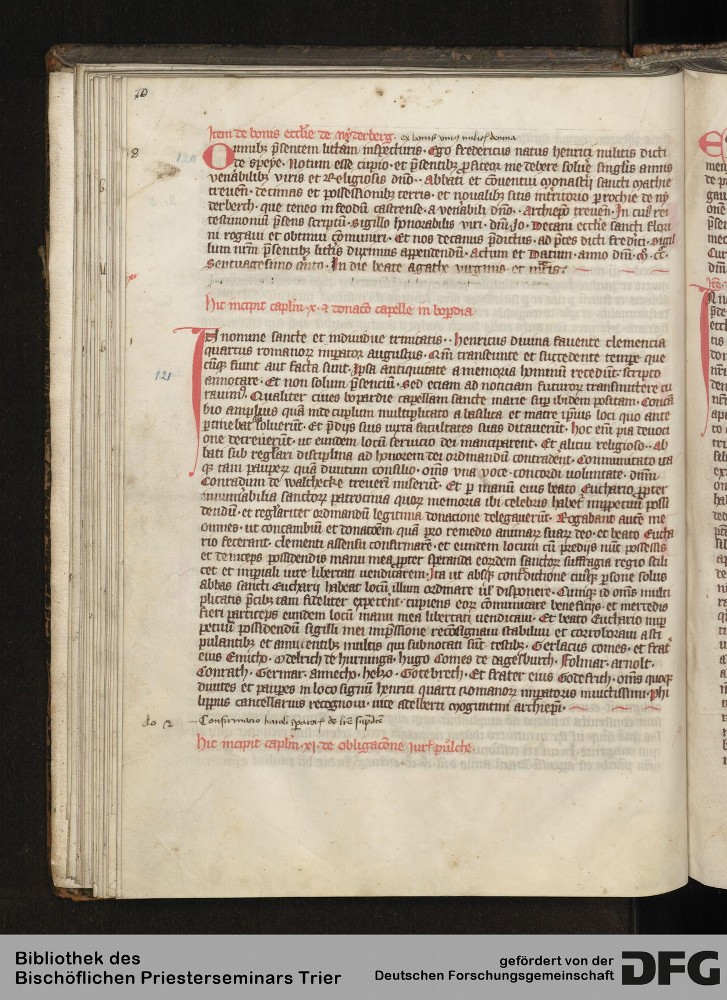 70
Item de bonis ecclie de Nyderberg. ex bonis
8
Omnibꝫ p̄sentem litt̄am inspecturis. Ego Fredericus natus henrici militis dicti
120
de Speye. Notum esse cupio. et p̄sentibꝫ p̄fiteor me debere solvē singlis annis
ven̄abilibꝫ viris et Religiosis dn̄o.. Abbati et cōuentui Monasterij sancti Mathie
treuen̄. decimas et possessionibꝫ terris. et noualibꝫ sitis in t̄ritorio parrochie de ny
derberch. que teneo in feodū castrense. a ven̄abili dn̄o. Archiepō treuen̄. In cuiꝰ rei
testimoniū p̄sens scriptū. Sigillo honorabilis viri. dn̄i. Jo. Decani ecclie sancti Flori
ni rogaui et obtinui cōmuniri. Et nos decanus p̄dictus. ad p̄ces dicti Fredici. Sigil
lum nr̄m p̄sentibꝫ litt̄is duximus appendendū. Actum et Datum. anno dn̄i. M. CC.
Septuagesimo In die beate agathe virginis et
Hic incipit caplm̄. x. de donacō̄e capelle in bopdia
In nomine sancte et individue trinitatis.. henricus divina favente clemencia
quartus romanorꝫ imp̄ator augustus. Qm̄ transeunte et succedente tempe que
cūqꝫ fiunt aut facta sunt. Ipsa antiquitate a memoria hominū recedūt. scripto
121
annotare. Et non solum p̄senciū. Sed eciam ad noticiam futurorꝫ transmittere cu
rauimꝰ. Qualiter cives bopardie capellam sancte marie sup̄ ibidem positam. Concā
bio amplius quā multiplicato a basilica et matre ip̄ius loci quo ante
p̄tinebat soluerūt. Et p̄dijs suis iuxta facultates suas ditauerūt. hoc eīm pia devoci
one decreuerūt. ut eundem locū servicio dei manciparent. Et alicui religioso.. Ab
bati sub reglari disciplina ad honorem dei ordinandū contradent. Communicato ita
qꝫ tam pauperꝫ quā divitum consilio. om̄s vna voce. concordi voluntate. dn̄m
Conradum de walcheke treueri miserūt. Et p manū eius beato Euchario ppter
innumerabilia sanctorꝫ patrocinia quorꝫ memoria ibi celebris habet in p̄petuū possi
dendū. et regłariter ordinandū legitima donacione delegauerūt. Rogabant autē me
omnes. ut concambiū et donacōem. quā pro remedio animarꝫ suarꝫ deo. et beato Eucha
rio fecerant. clementi assensu confirmarē. et eundem locum cū p̄dijs nūc possessis
et deinceps possidendis manu mea ppter speranda eordem sanctorꝫ suffragia regio scili
cet et imp̄iali iure libertati vendicarem. Ita ut absqꝫ contradictione cuiusqꝫ p̄sone solus
abbas sancti Eucharij habeat locū illum ordinare ut disponere. Cumqꝫ id om̄s multi
plicatis p̄cibꝫ tam fideliter expeterent. cupiens eorꝫ cōmunicare beneficijs. et mercedis
fieri particeps eundem locū manu mea libertati vendicaui. Et beato Euchario in p̄
petuū possidendū sigilli mei imp̄ssione recōsignaui stabiliui et corroboraui asti
pulantibꝫ et annuentibꝫ multis qui subnotati sūt testibꝫ. Gerlacus comes. et frat̄
eius Emicho. Odelrich de hurninga. hugo Comes de dagesburch. Folmar. arnolt.
Conrath. Germar. annecho. hezzo. Gotebrech. Et frater eius Godefrich. om̄s quoqꝫ
divites et paupes in loco signū henrici quarti romanorꝫ imp̄atoris invictissimi. Phi
lippus cancellarius recognovi. vice adelberti moguntini archiepī.
Confirmatio
Hic incipit caplm̄. xi. de obligacō̄e
Bibliothek des
Bischöflichen Priesterseminars Trier
gefördert von der
Deutschen Forschungsgemeinschaft
DFG